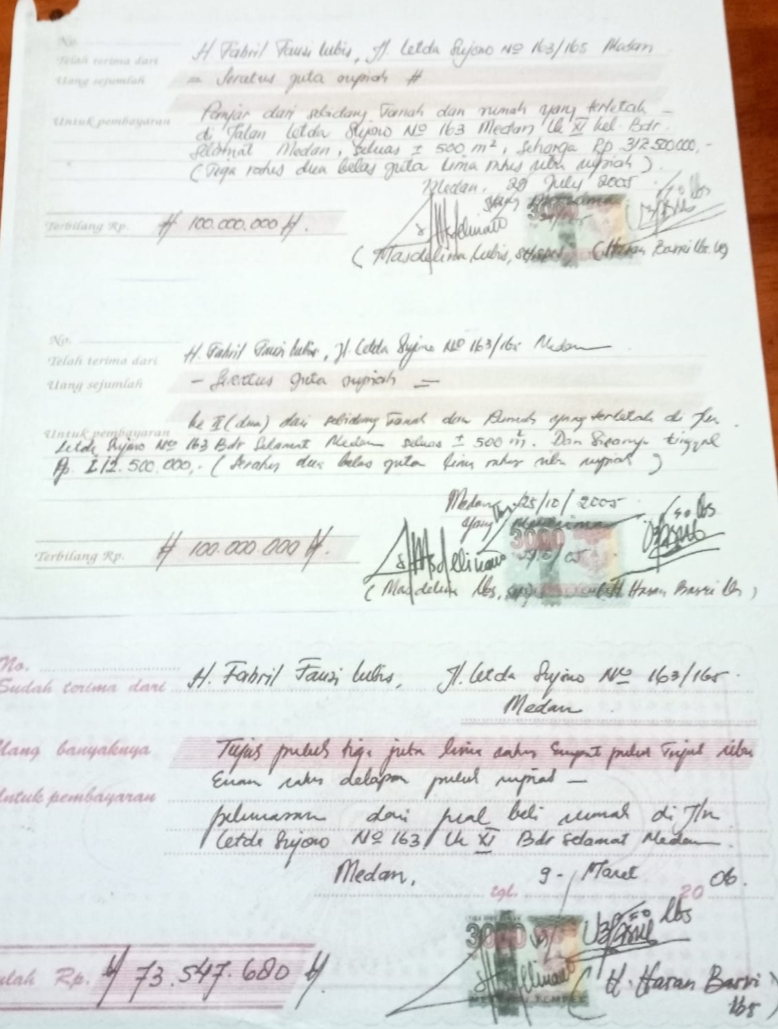 No.
Telah terima dari H. Fabril Fauzi Lubis, Jl. Letda Sujono No 163/165 Medan
Uang sejumlah = Seratus juta rupiah #
Untuk pembayaran Panjar dari sebidang Tanah dan rumah yang terletak
di Jalan Letda Sujono No 163 Medan Lk XI kel. Bdr.
Selamat Medan, seluas ± 500 m², seharga Rp 312.500.000,-
(Tiga ratus dua belas juta lima ratus ribu rupiah).
Medan, 29 July 2005
Terbilang Rp. # 100.000.000 #.
(Masdelima Lubis, (Hasan Basri Lbs)
No.
Telah terima dari H. Fabril Fauzi Lubis, Jl. Letda Sujono No 163/165 Medan
Uang sejumlah - Seratus juta rupiah =
Untuk pembayaran ke II (dua) dari sebidang Tanah dan Rumah yang terletak di Jln.
Letda Sujono No 163 Bdr Selamat Medan seluas ± 500 m². Dan Sisanya tinggal
Rp. 112.500.000,- (Seratus dua belas juta lima ratus ribu rupiah)
Medan 25/10/2005
yang
3000
Terbilang Rp. # 100.000.000 #.
(Masdelima Lbs, H. Hasan Basri Lbs)
No.
Sudah terima dari H. Fabril Fauzi Lubis, Jl. Letda Sujono No 163/165
Medan
Uang banyaknya Tujuh puluh tiga juta lima ratus Empat puluh Tujuh ribu
Enam ratus delapan puluh rupiah -
Untuk pembayaran pelunasan dari jual beli rumah di Jln
Letda Sujono No 163 Lk XI Bdr Selamat Medan.
Medan, tgl. 9 - Maret 2006.
3000
Jumlah Rp. # 73.547.680 #.
(H. Hasan Basri Lbs)